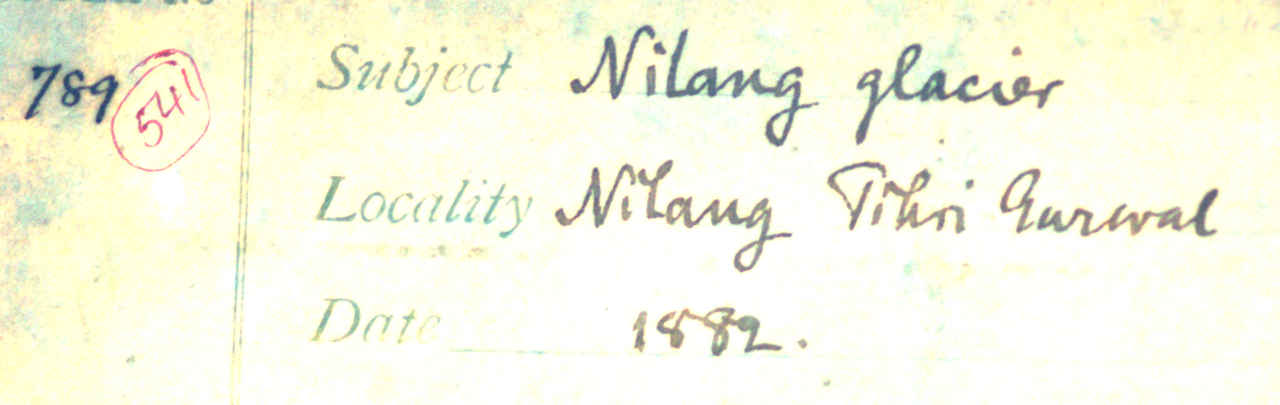 789 541 Subject Nilang glacier
Locality Nilang Tihri Gurwal
Date 1882.